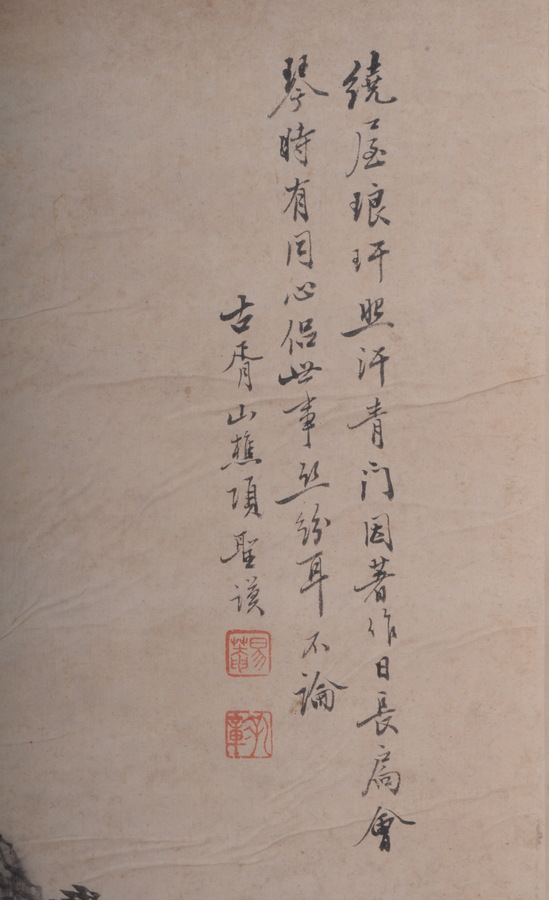 繞屋琅玕照汗青門因著作日長扃會
琴時有同心侶世事絲紛耳不論
古胥山樵項聖謨